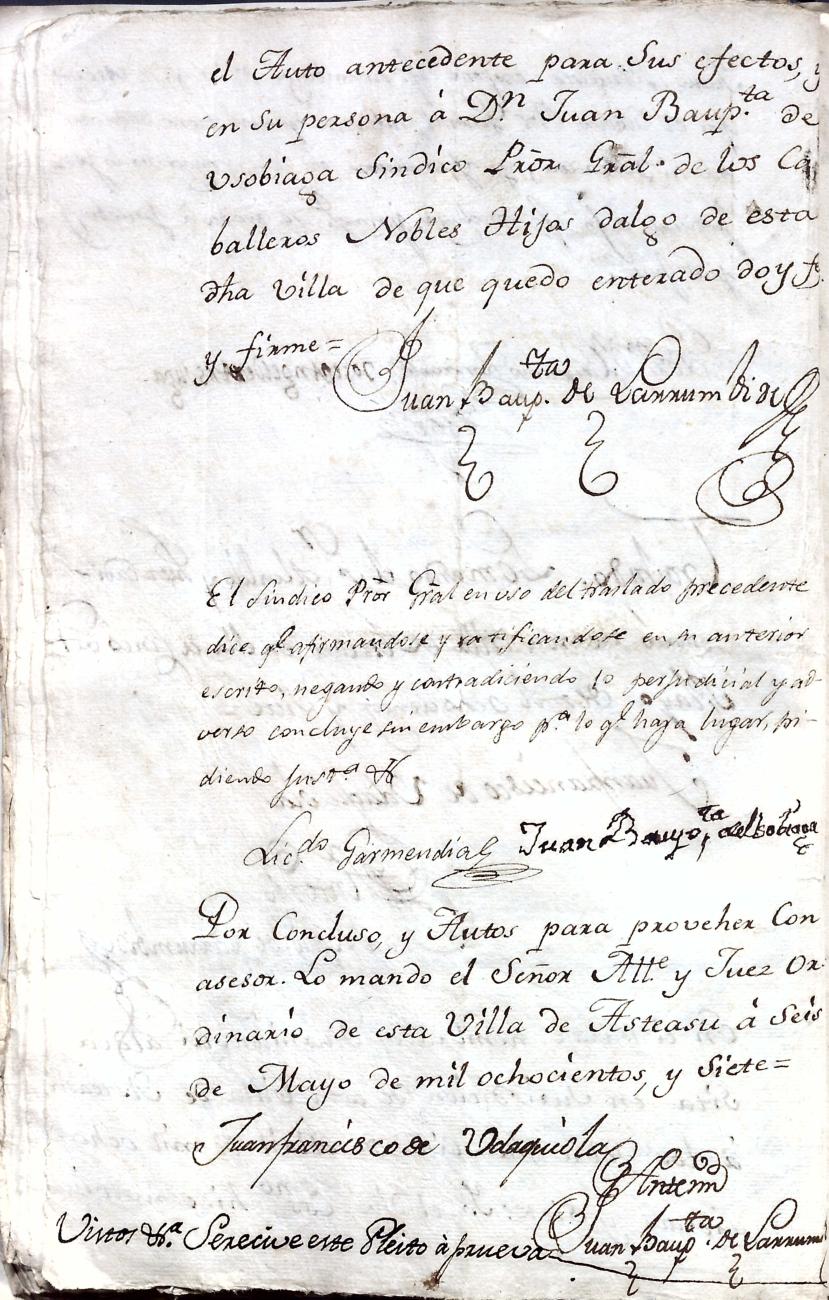 el Auto antecedente para Sus efectos, y
en Su persona á Dn. Juan Baup.ta de
Vsobiaga Sindico Prõr Grãl. de los Ca
balleros Nobles Hijos dalgo de esta
dha Villa de que quedo enterado doy fe
y firme=
Juan Baup.ta de Larrumbide
El Sindico Prõr Grãl en uso del traslado precedente
dice q.e afirmandose y ratificandose en su anterior
escrito, negando y contradiciendo lo perjudicial y ad-
verso concluye sin embargo p.a lo q.e haya lugar, pi-
diendo just.a &
Lic.do Garmendia Juan Baup.ta de Vsobiaga
Por Concluso, y Autos para proveher Con
asesor. Lo mando el Señor Alle. y Juez Or-
dinario de esta Villa de Asteasu á Seis
de Mayo de mil ochocientos, y Siete=
Juan francisco de Udaquiola
Antemi
Juan Baup.ta de Larrum
Vistos &.a Se recive este Pleito à prueva